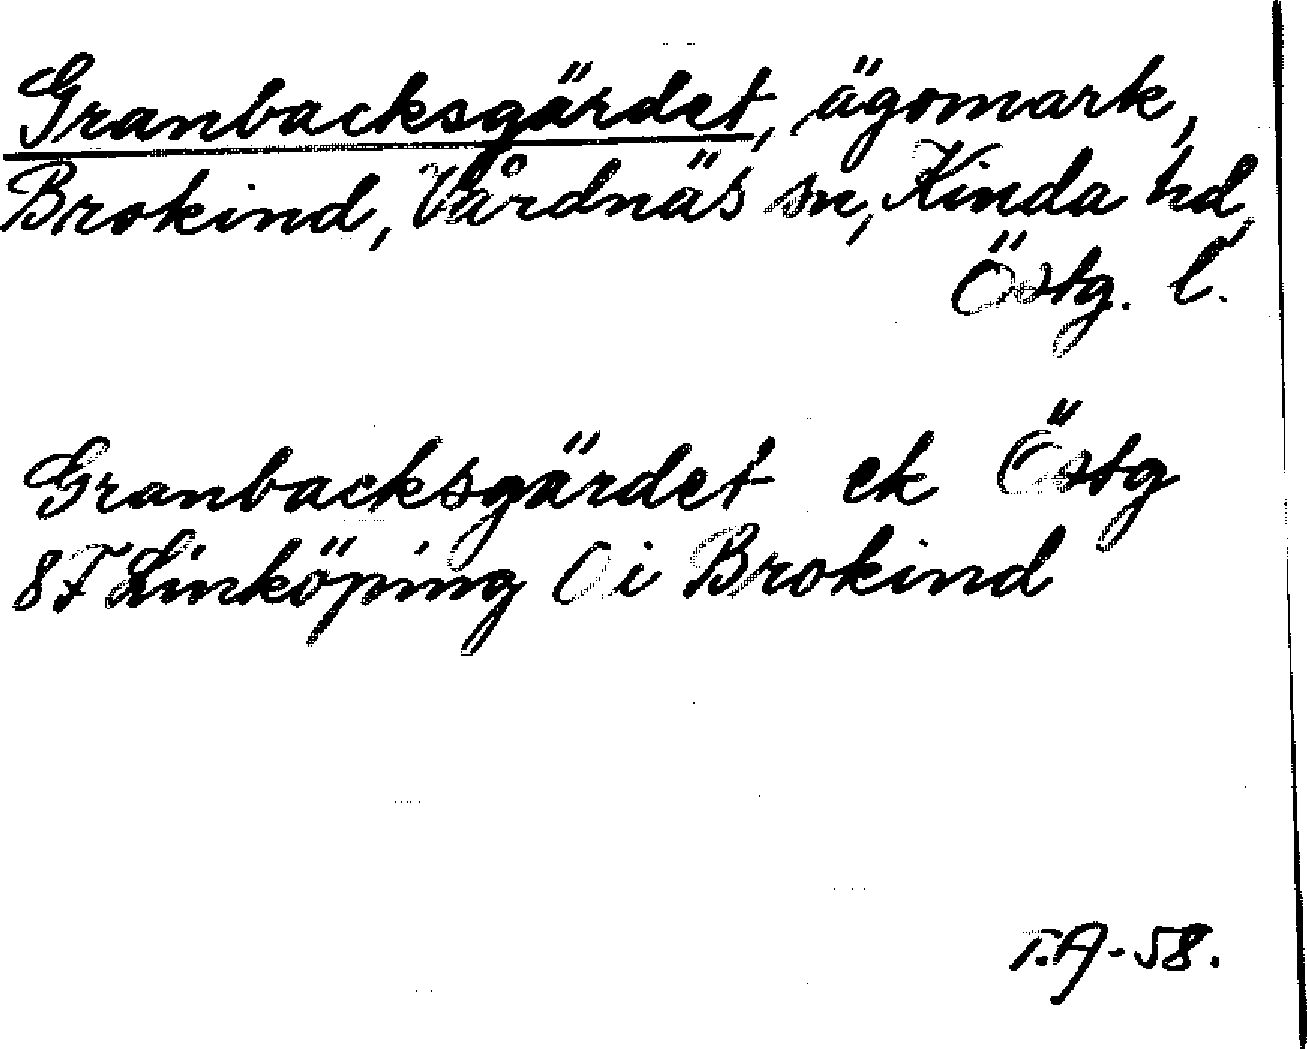 Granbacksgärdet, ägomark,
Brokind, Vårdnäs sn, Kinda hd,
Östg. l.
Granbacksgärdet ek Östg
8F Linköping O i Brokind
T.A-58.